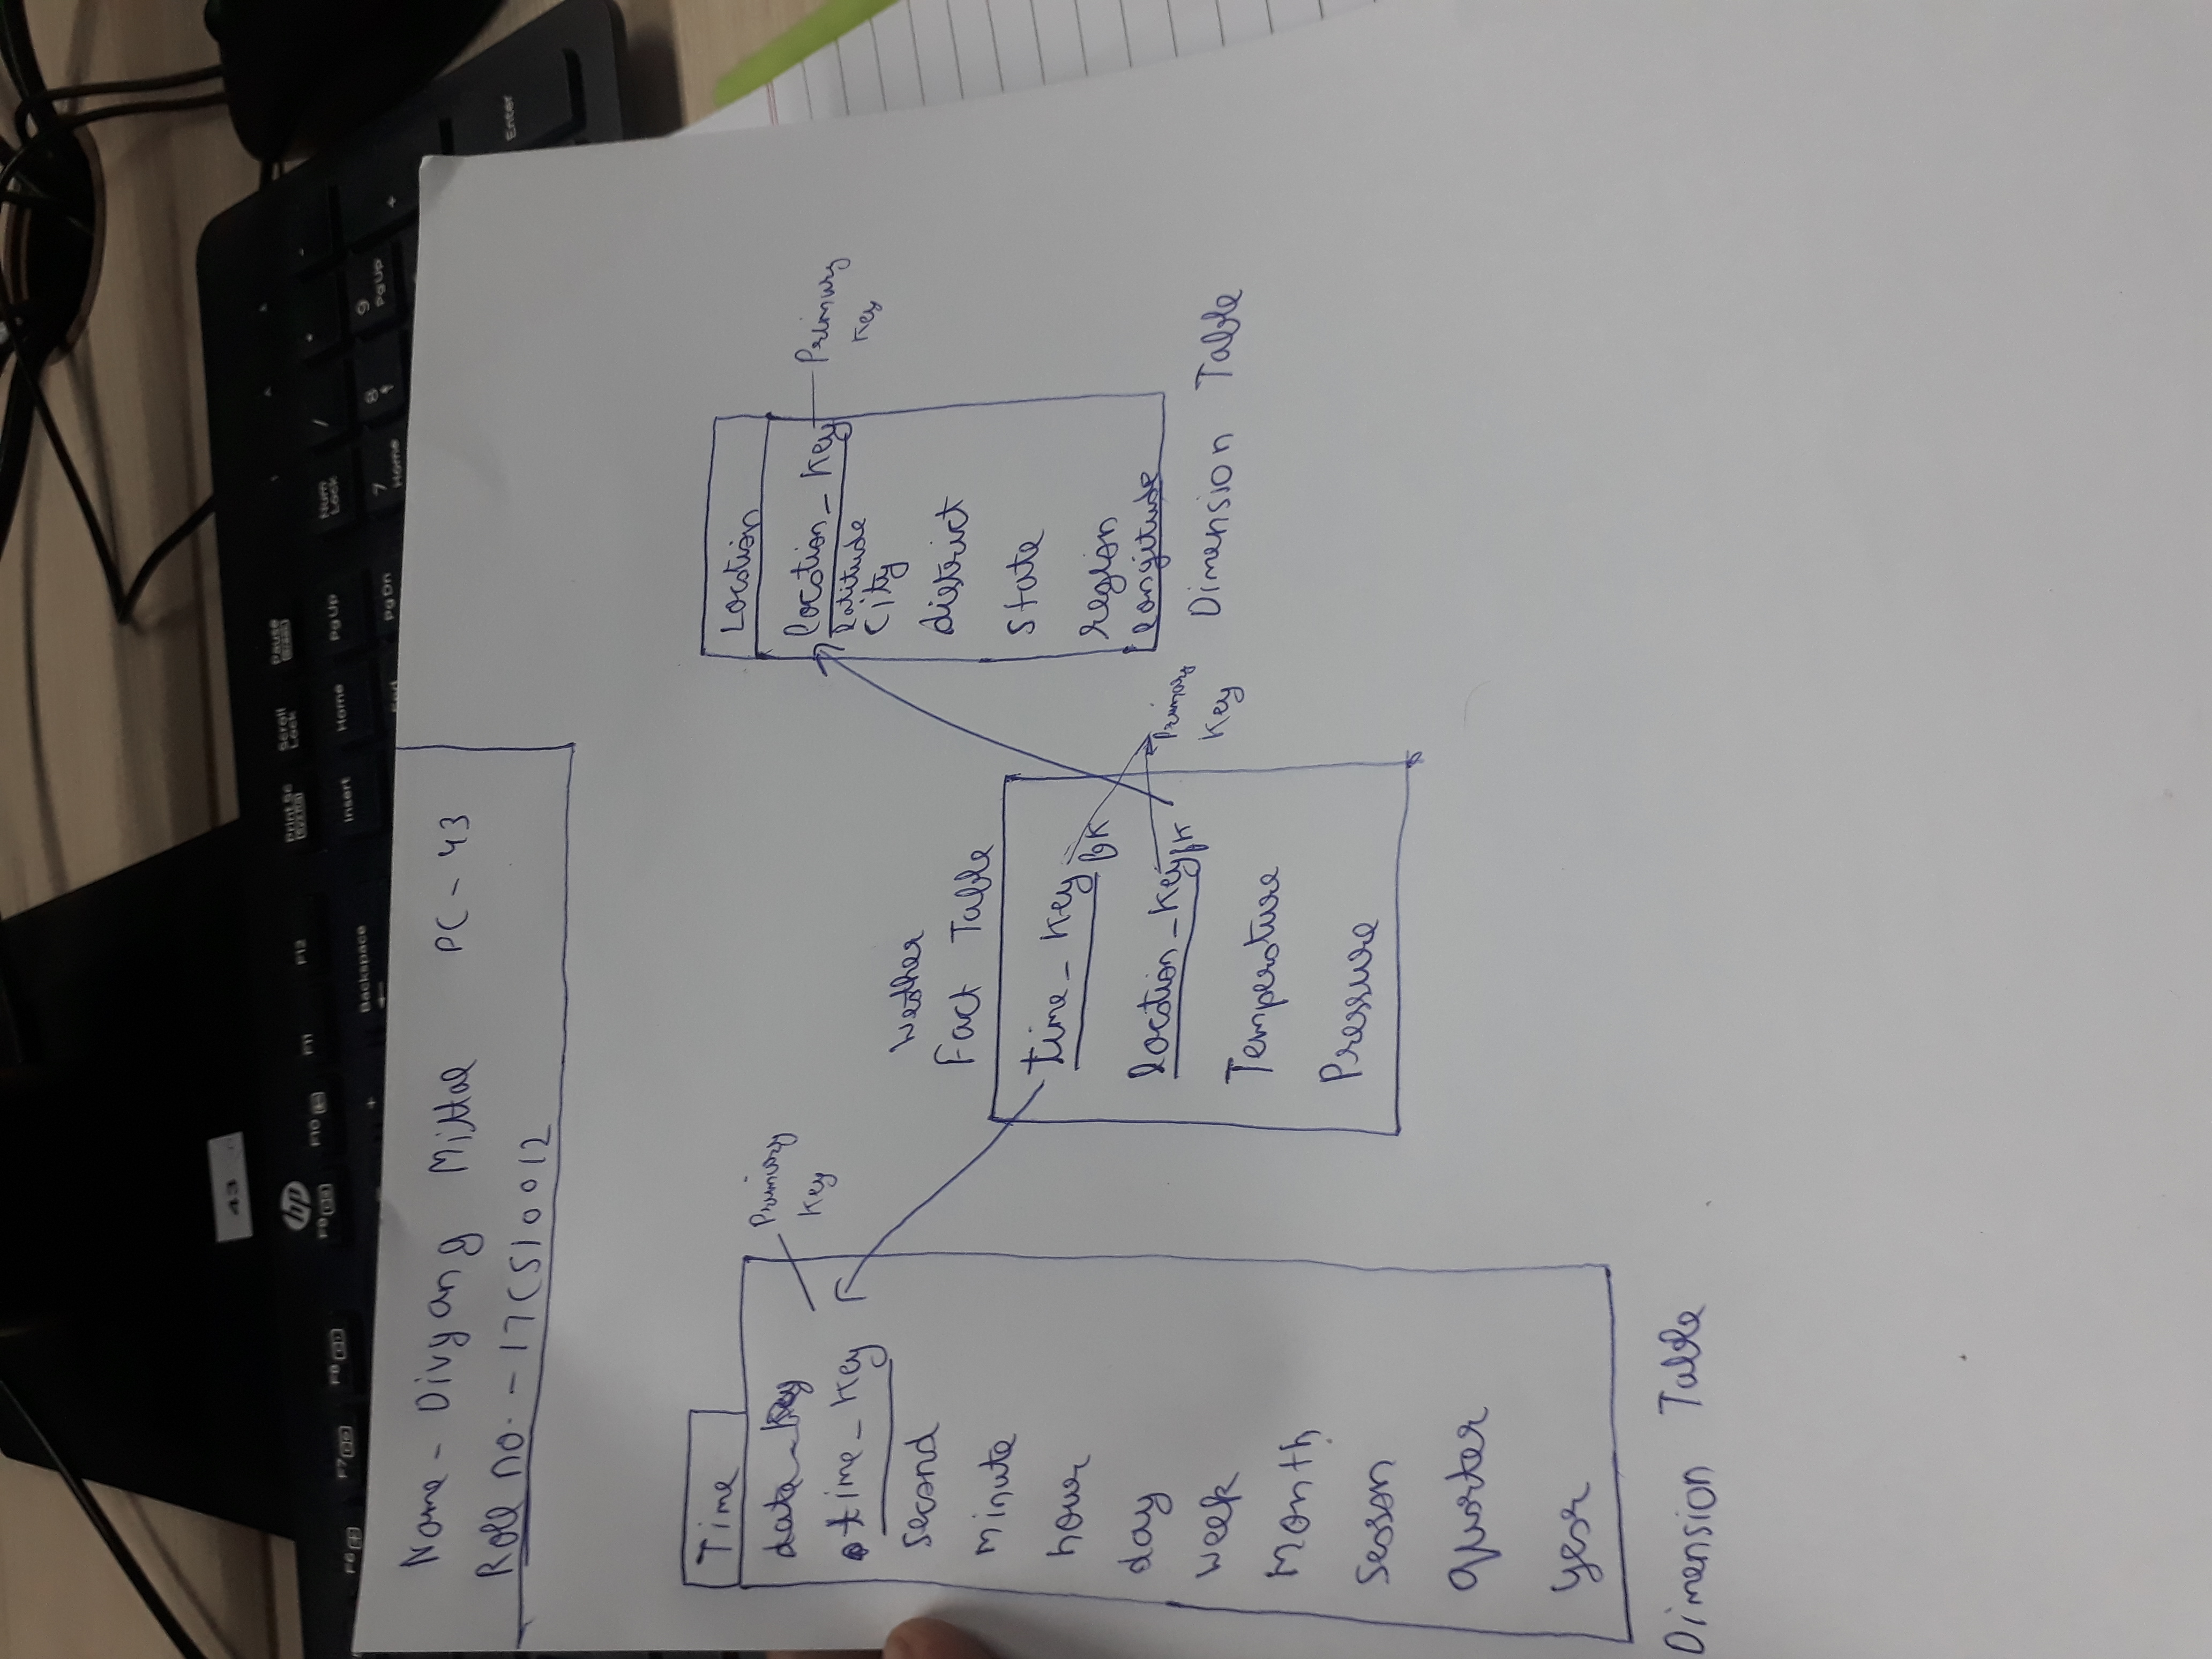 43
hp
F6
F7
F8
F9
F10
F11
F12
Print Sc
Scroll
Lock
Pause
Backspace
Insert
Home
PgUp
PgDn
Num
Lock
/
7
Home
8
9
PgUp
Enter
Name - Divyang Mittal PC - 43
Roll no. - 17CS10012
Time
data_key
time_key
second
minute
hour
day
week
month
season
quarter
year
Dimension Table
Primary
Key
Weather
Fact Table
time_key
location_key FK
Temperature
Pressure
Primary
Key
Location
location_key
latitude
City
district
state
region
longitude
Dimension Table
Primary
Key